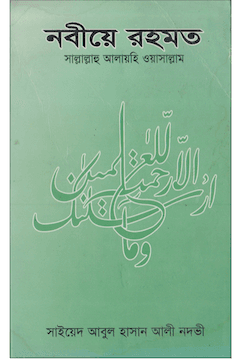 নবীয়ে রহমত
সাল্লাল্লাহু আলায়হি ওয়াসাল্লাম
وما أرسلناك إلا رحمة للعالمين
সাইয়েদ আবুল হাসান আলী নদভী